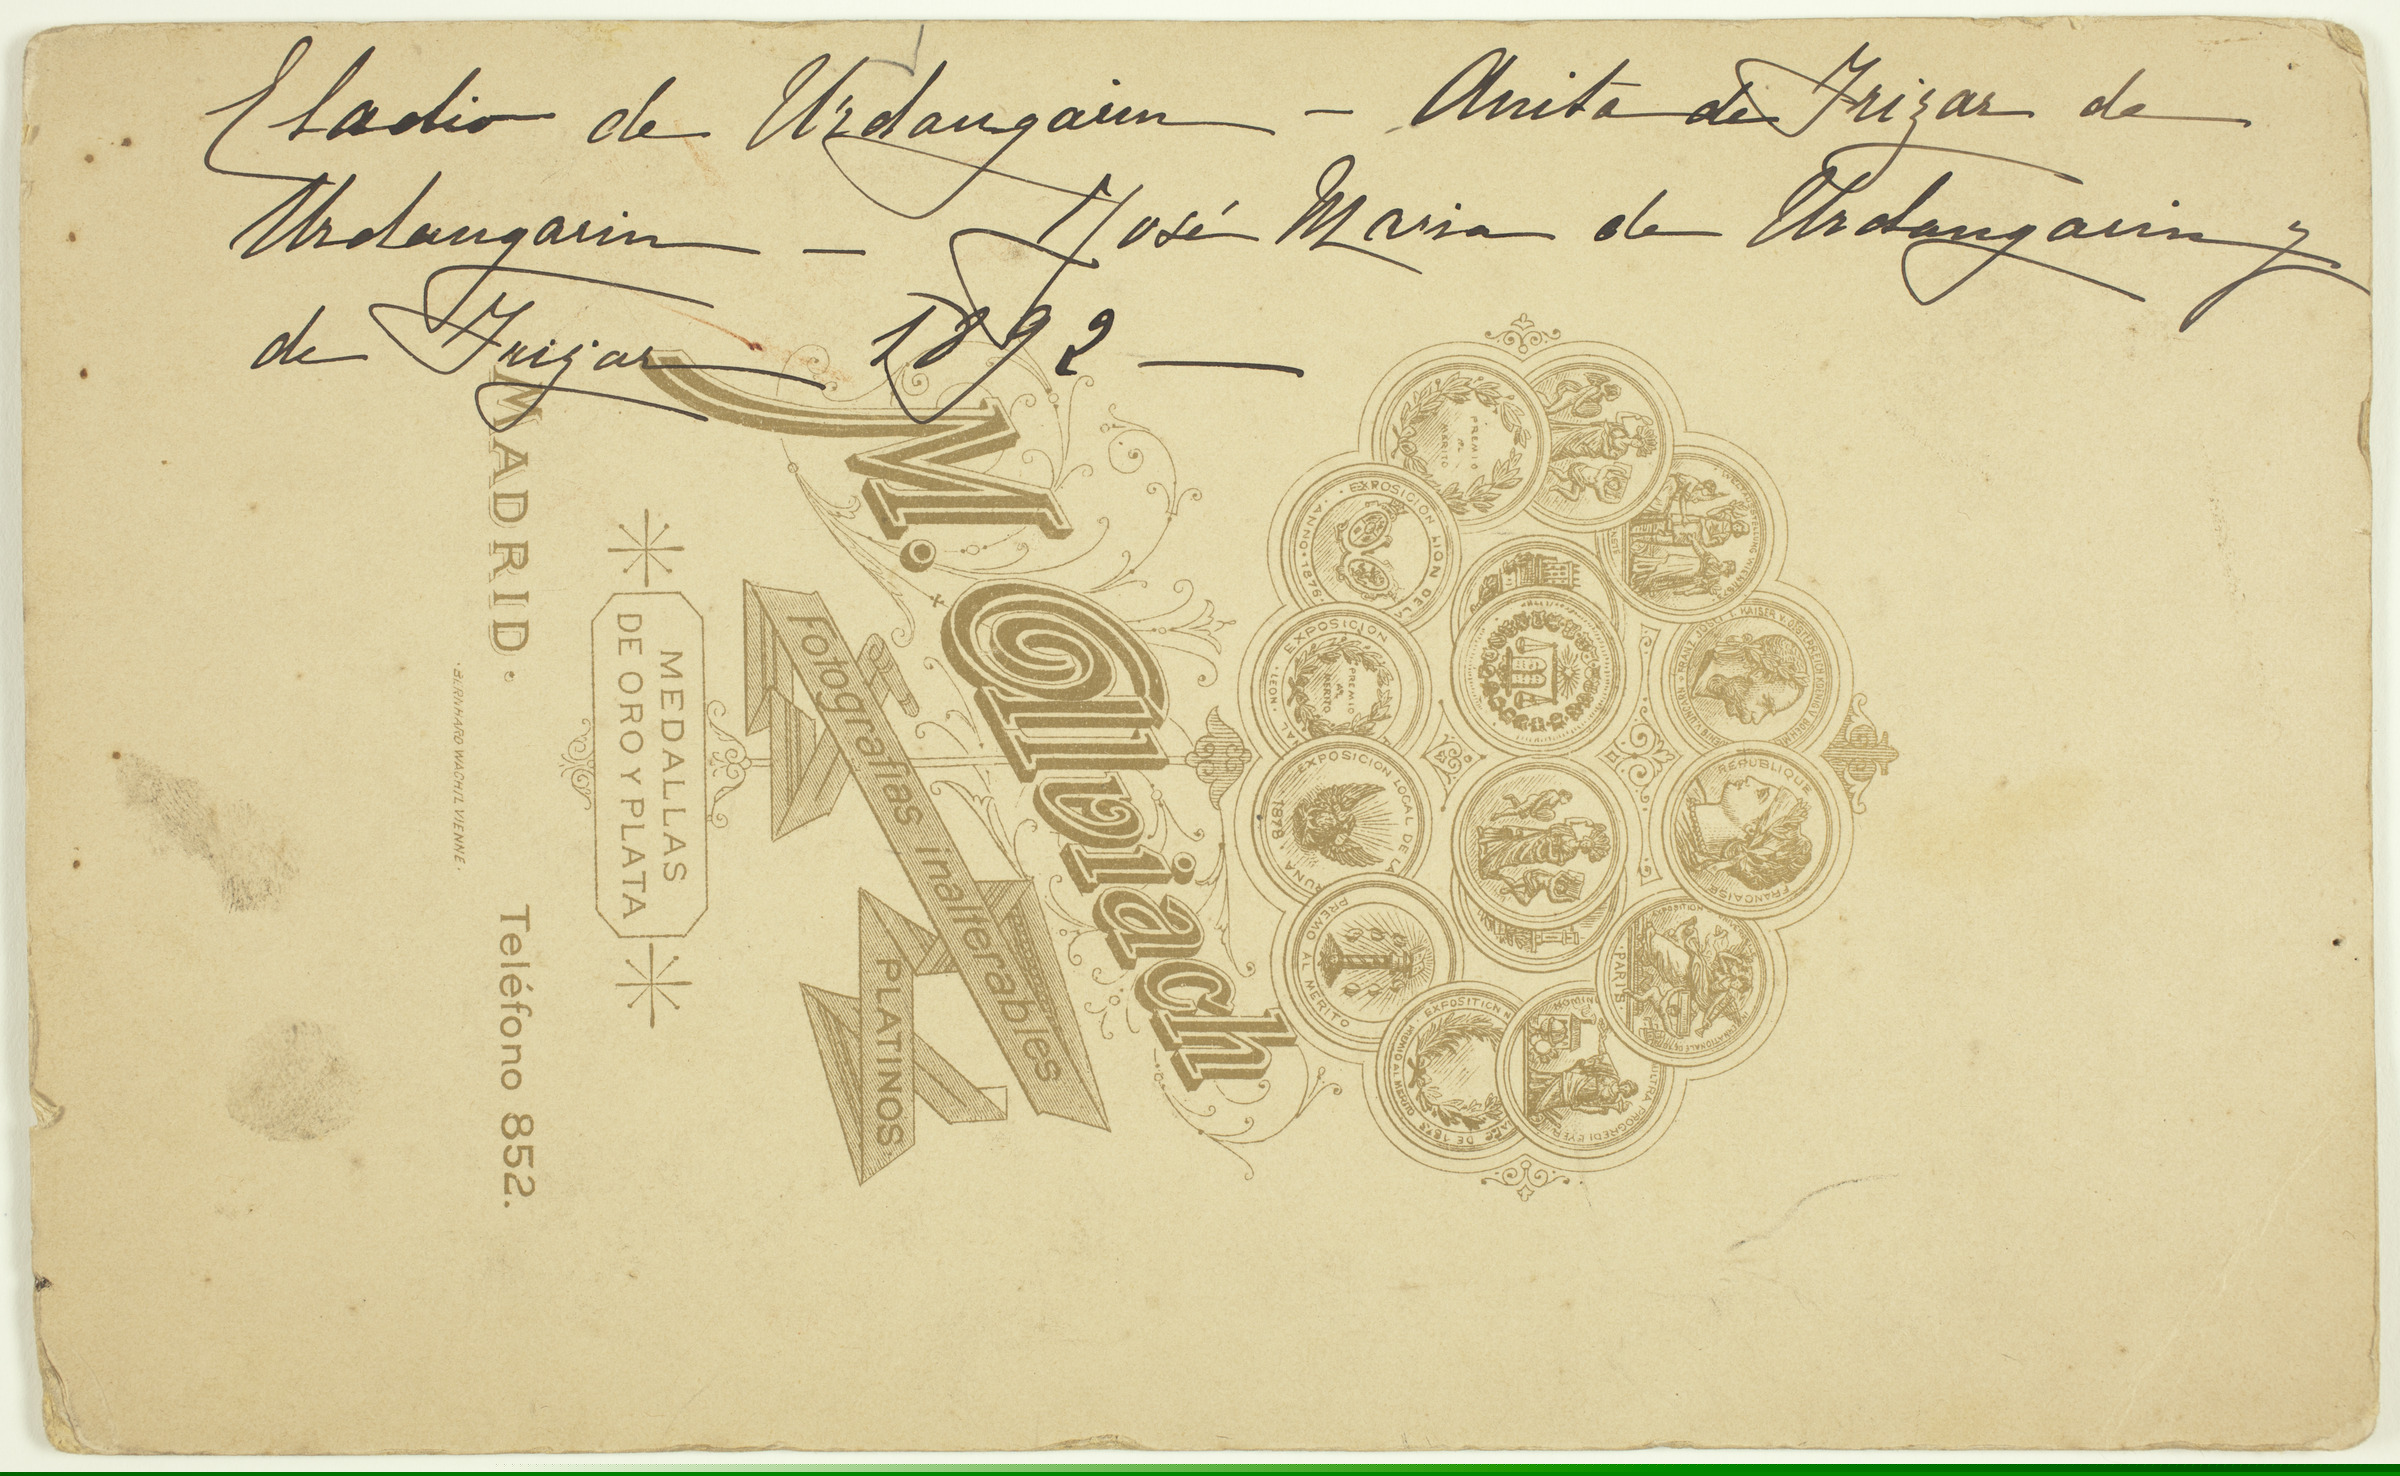 Eladio de Urdangarin - Anita de Irizar de
Urdangarin - José Maria de Urdangarin y
de Irizar 1892 —
M. Alviach
Fotografías inalterables
PLATINOS.
MEDALLAS
DE ORO Y PLATA
MADRID. Teléfono 852.
BERNHARD WACHTL VIENNE.
PREMIO
AL
MERITO
EXPOSICION
1876
EXPOSICION
LEON
PREMIO
AL
MERITO
EXPOSICION LOCAL DE LA
1878
PREMIO AL MERITO
REPUBLIQUE
FRANCAISE
PARIS